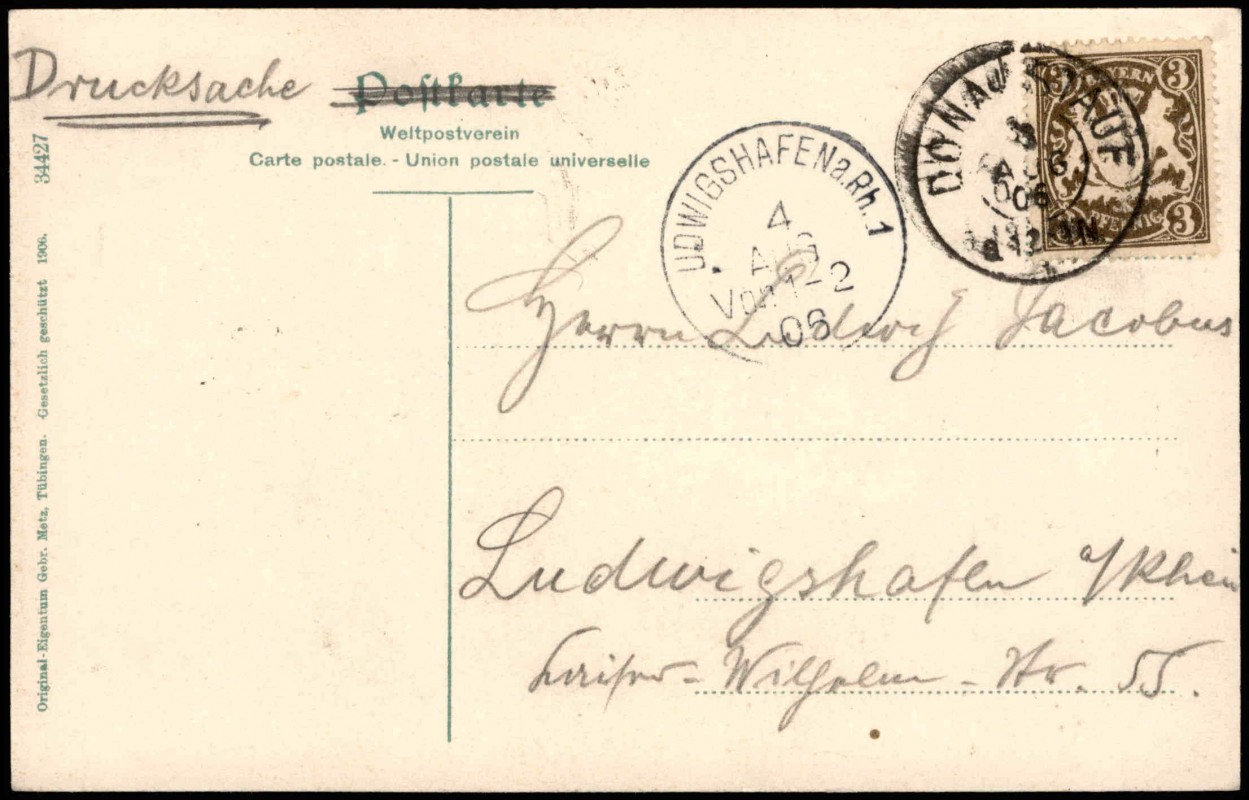 Drucksache
Postkarte
Weltpostverein
Carte postale. - Union postale universelle
34427
Original-Eigentum Gebr. Metz, Tübingen. Gesetzlich geschützt 1906.
UDWIGSHAFEN a. Rh. 1
4
AUG
Vor 1-2
06
DONAUSTAUF
3
AUG
06
BAYERN
3 3
PFENNIG
3
Herrn Ludwig Jacobus
Ludwigshafen a/Rhein
Kaiser-Wilhelm-Str. 55.